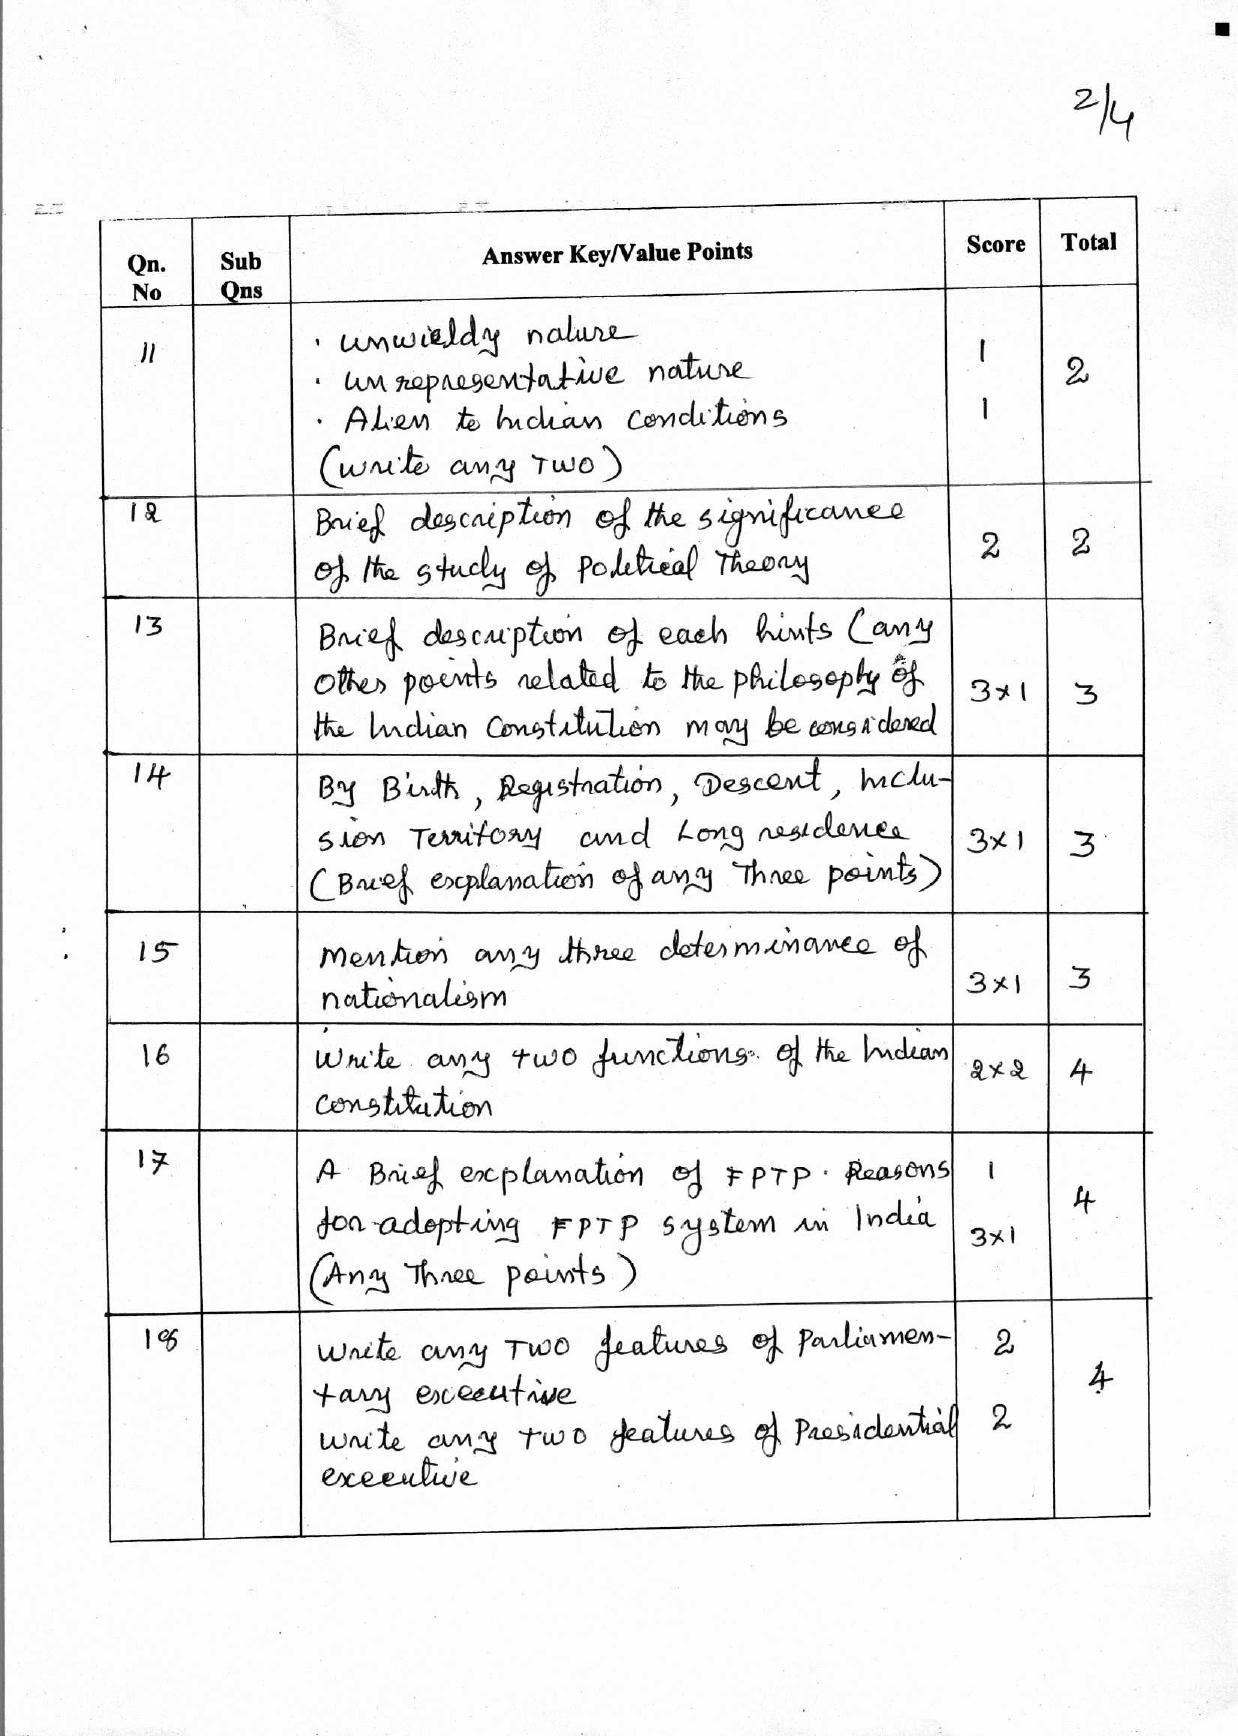 2/4
Qn. No
Sub Qns
Answer Key/Value Points
Score
Total
11
· unwieldy nature
· unrepresentative nature
· Alien to Indian conditions
(write any Two)
1
1
2
12
Brief description of the significance
of the study of Political Theory
2
2
13
Brief description of each hints (any
other points related to the philosophy of
the Indian Constitution may be considered
3×1
3
14
By Birth, Registration, Descent, Inclu-
sion Territory and Long residence
(Brief explanation of any Three points)
3×1
3
15
Mention any three determinance of
nationalism
3×1
3
16
Write any two functions of the Indian
constitution
2×2
4
17
A Brief explanation of FPTP. Reasons
for adopting FPTP system in India
(Any Three points)
1
3×1
4
18
Write any Two features of Parliamen-
tary executive
Write any two features of Presidential
executive
2
2
4